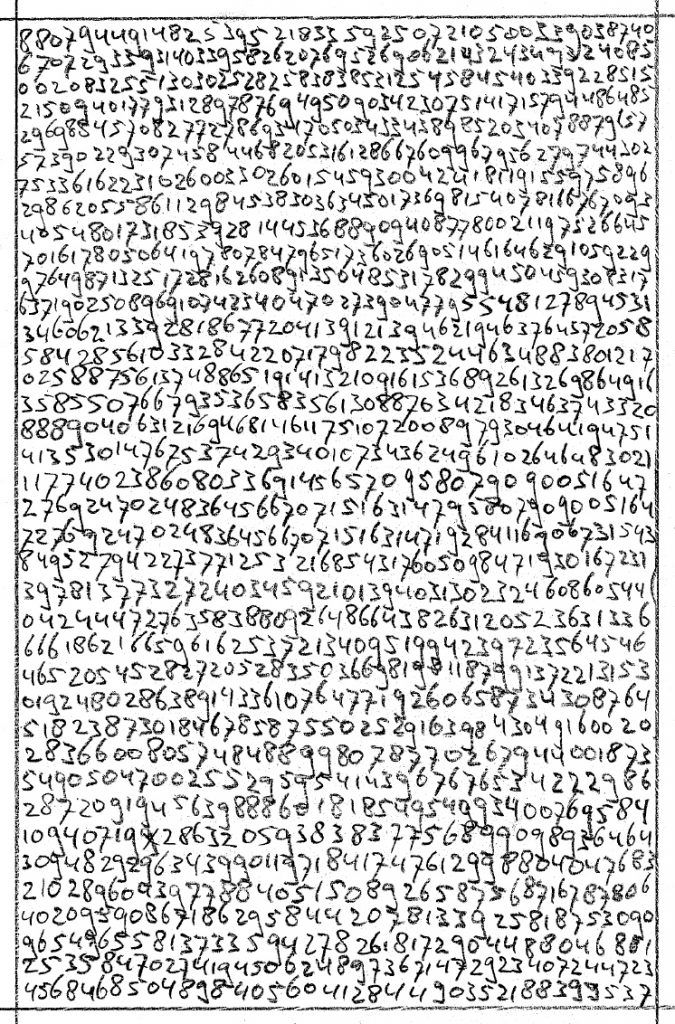 8807944914825395218335925072105003390387 40
6707293393140339582620769526900621432434933240 85
0020832551303025282583838531254584540339228515
2150940177931289787694950903423075141715794486485
2969884570827727869347050343343898520340788796 57
5739022930745844682053161286676099679562797443 02
7533616223102600330260154593004224181191559758 96
2986205586112984538303634501736981540781667670093
4054801731853928144536889094087780021197326645
70161780506419780784796517360269051461646291059229
9764987132517281626089135048531782994504593083 17
6371902508969107423404702739047795548127894531
3460621339281867720413912139462194637645 72058
5842856103328422071798223352446348838012 17
0258875613748865191413210916153689261326986 4916
3585507667935365835613088763421834637433 20
88890406312169468146117510720089793046419 4751
413530147625374293401073436249610264648 3021
1177402386080336914565709580790900516 47
276924702483645667071516314795807909005164
722769247024836456670715163147192841169067315 43
8495279422737712532168543176050984719301672 31
3978137732724034592101394031302324608605 44
042444727635838809264866438263120523631336
66618621665961625372134095199423972356454 6
465205452827205283503669819811879913722131 53
0192480286389143361076477192606587343087 64
5182387301846785875502529163984304916002 0
28366008057484889980787702679440018 73
5490504700255295954143967676534222986
287209194563988860181859954093400769584
1094071992863205938383775689909893646 4
309482929634399011971841747612998804047683
210289600939778840515089265873687167878 06
40209590867186295844207813392581875309 0
965496558137335942782618172904488046 881
253584702741945062489736714729234072447 23
456846850489840560412844903521883995 37